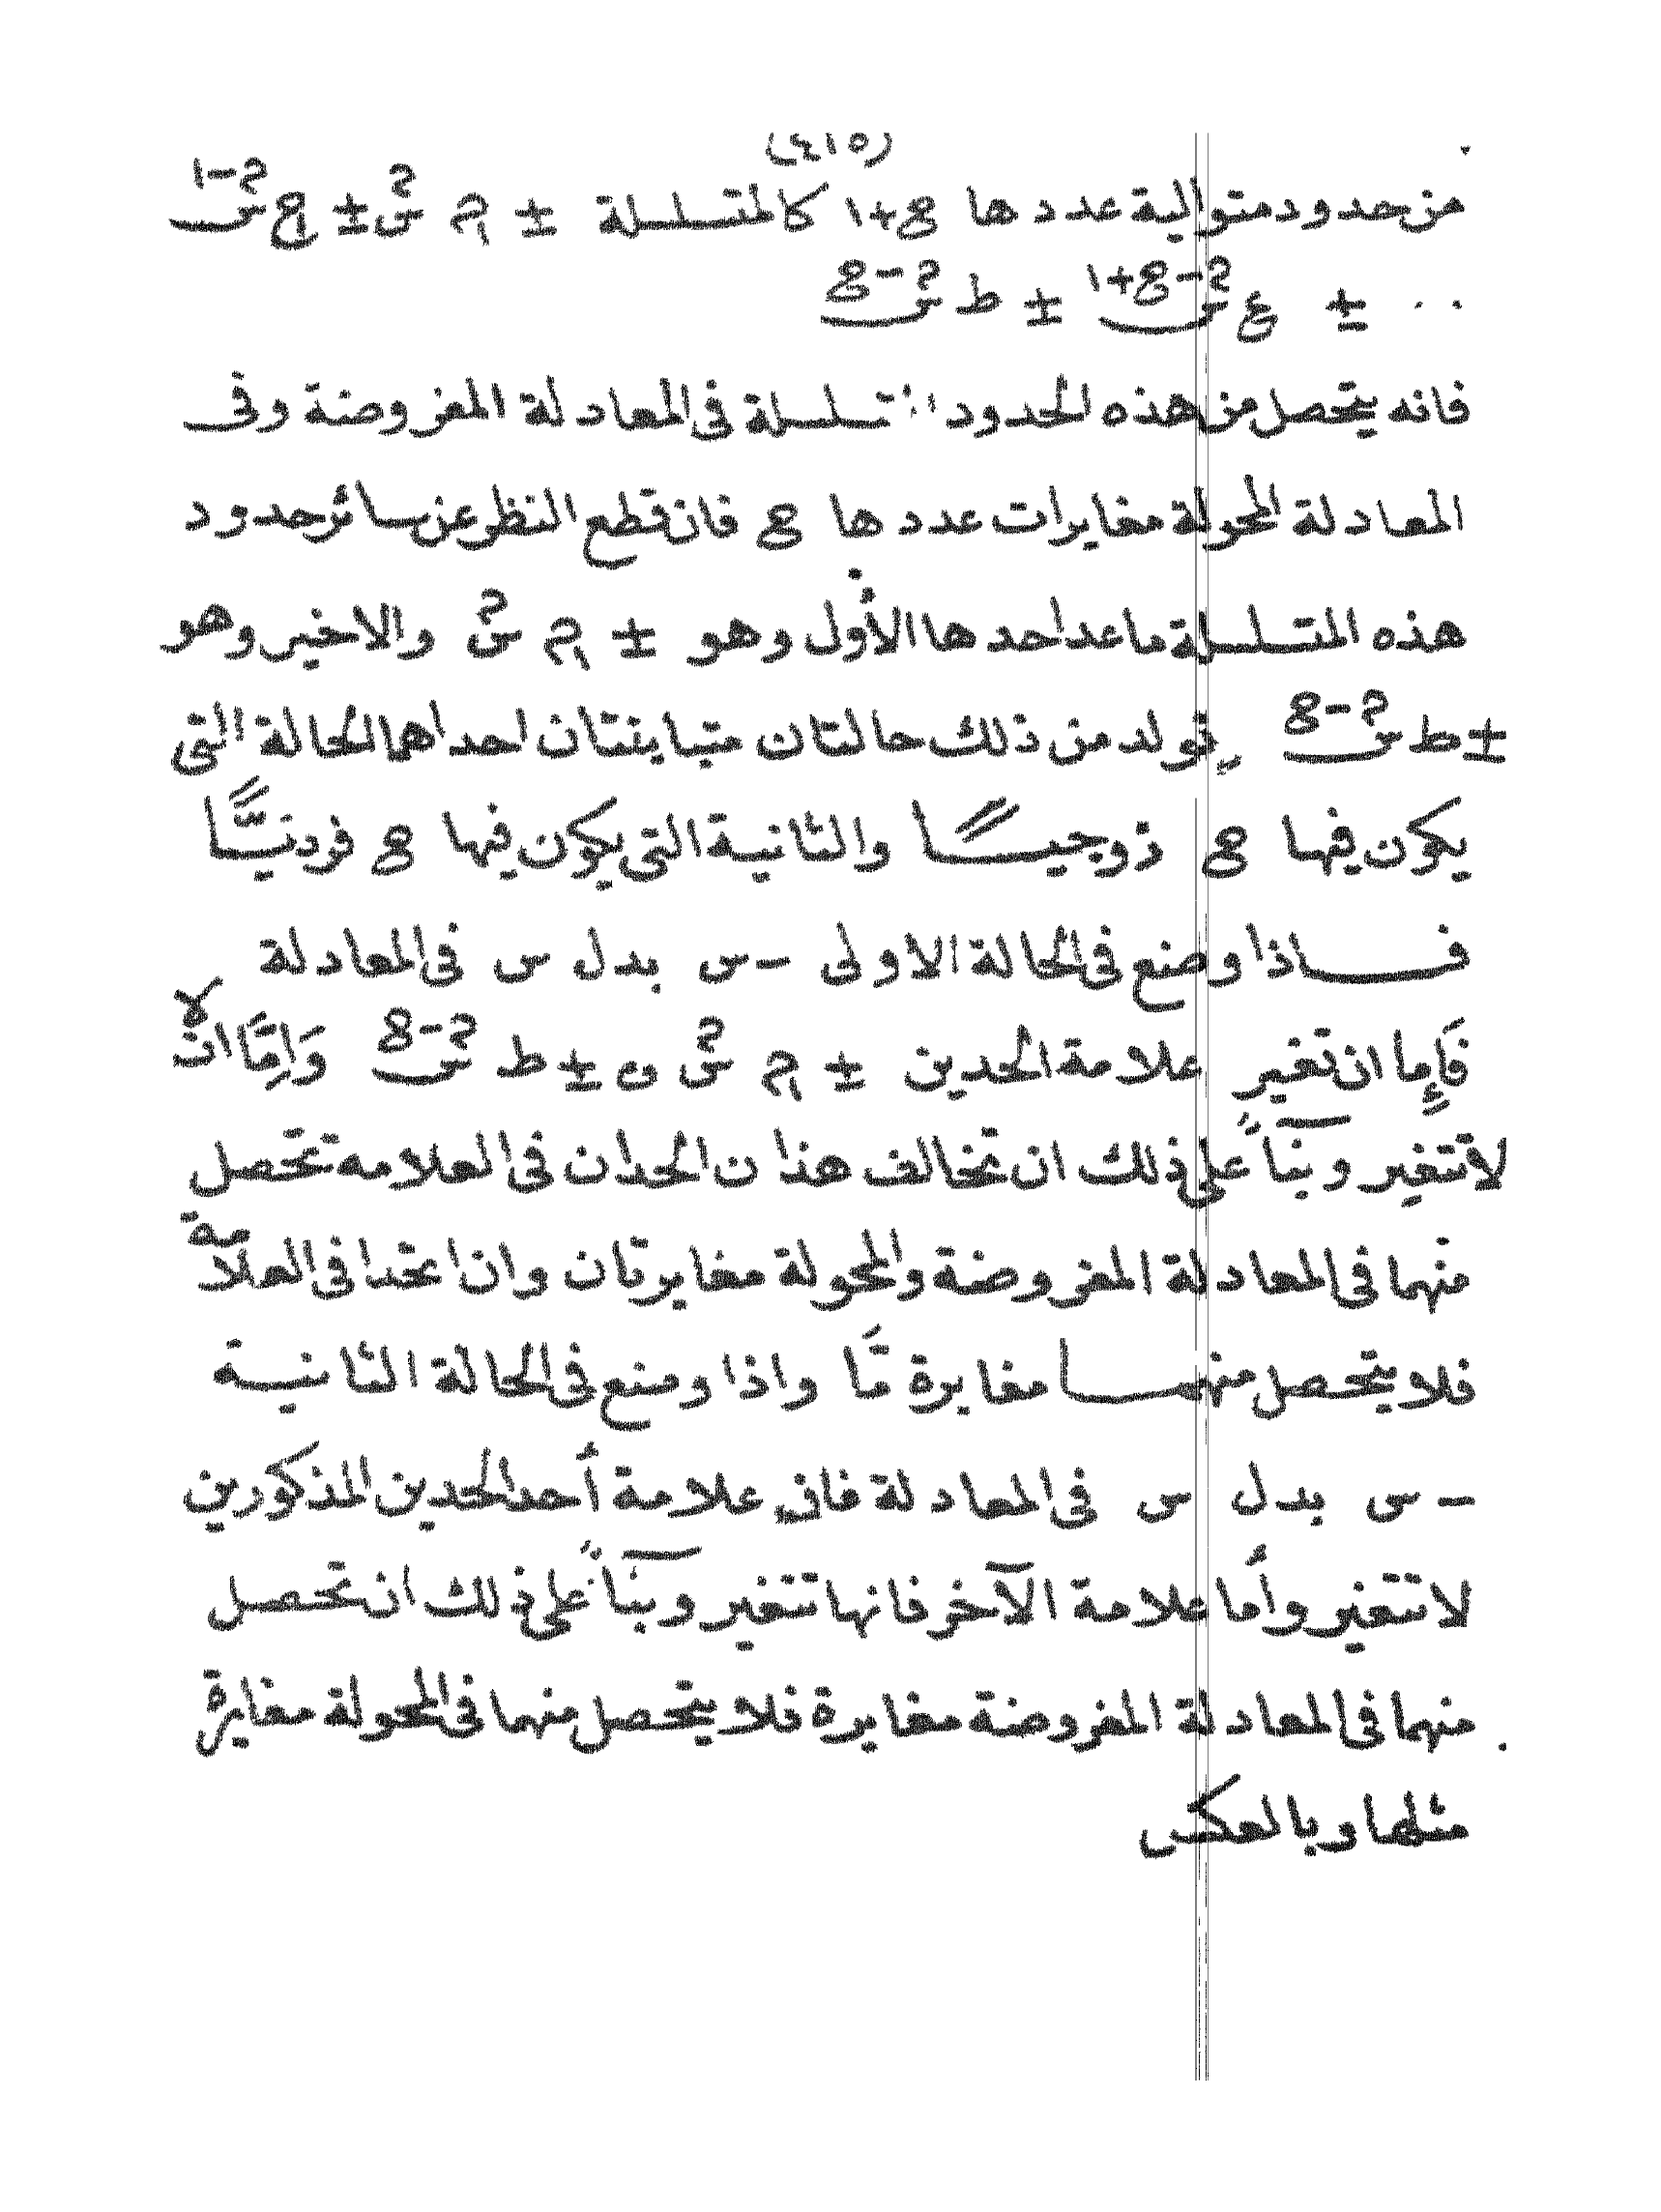 (٤١٥)
من حدود متوالية عددها ع+١ كالمتسلسلة ± م س^م ± ج س^(م-١)
.. ± ع س^(م-ع+١) ± ط س^(م-ع)
فانه يتحصل من هذه الحدود تسلسلة فى المعادلة المفروضة وفى
المعادلة المحولة مغايرات عددها ع فان قطع النظر عن سائر حدود
هذه المتسلسلة ماعدا حدها الأول وهو ± م س^م والاخير وهو
± ط س^(م-ع) يتولد من ذلك حالتان متباينتان احداهما الحالة التى
يكون فيها ع زوجيًّا والثانية التى يكون فيها ع فرديًّا
فاذا وضع فى الحالة الاولى -س بدل س فى المعادلة
فَإِما ان تغير علامة الحدين ± م س^م و ± ط س^(م-ع) وَاِمَّا ان لا
لا تتغير وبنآءً على ذلك ان تخالف هذان الحدان فى العلامه تحصل
منهما فى المعادلة المفروضة والمحولة مغايرتان وان اتحدا فى العلامة
فلا يتحصل منهما مغايرة مَّا واذا وضع فى الحالة الثانية
-س بدل س فى المعادلة فان علامة أحد الحدين المذكورين
لا تتغير وأما علامة الآخر فانها تتغير وبنآءً على ذلك ان تحصل
منهما فى المعادلة المفروضة مغايرة فلا يتحصل منهما فى المحولة مغايرة
مثلهما وبالعكس